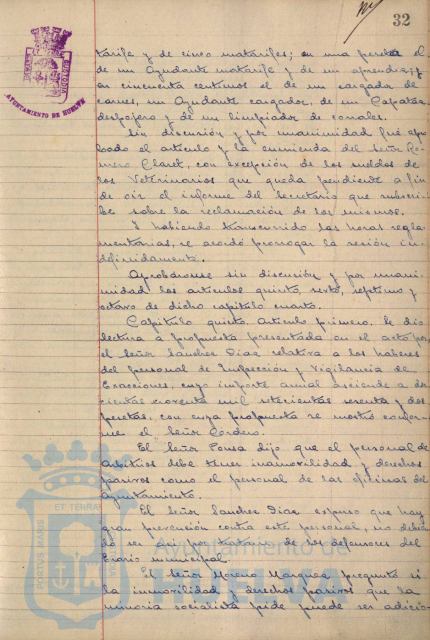 32
AYUNTAMIENTO DE HUELVA
tarife y de cinco matarifes; en una peseta el
de un Ayudante matarife y de un aprendiz; y
en cincuenta centimos el de un cargador de
carnes, un Ayudante cargador, de un Capataz
despojero y de un limpiador de corrales.
Sin discusión y por unanimidad fué apro-
bado el artículo y la enmienda del Señor Ro-
mero Claret, con excepción de los sueldos de
los Veterinarios que queda pendiente a fin
de oir el informe del Secretario que subscri-
be sobre la reclamación de los mismos.
Y habiendo transcurrido las horas regla-
mentarias, se acordó prorrogar la sesión in-
definidamente.
Aprobáronse sin discusión y por unani-
midad los artículos quinto, sexto, septimo y
octavo de dicho capítulo cuarto.
Capítulo quinto. Artículo primero. Se dió
lectura a propuesta presentada en el acto por
el Señor Sanchez Diaz relativa a los haberes
del personal de Inspección y Vigilancia de
Exacciones, cuyo importe anual asciende a dos
cientas noventa mil setecientas sesenta y dos
pesetas, con cuya propuesta se mostró confor-
me el Señor Cordero.
El Señor Ponsa dijo que el personal de
Arbitrios debe tener inamovilidad y derechos
pasivos como el personal de las oficinas del
Ayuntamiento.
El Señor Sanchez Diaz expuso que hay
gran prevención contra este personal, no debien-
do ser asi por tratarse de los defensores del
Erario municipal.
El Señor Moreno Marquez preguntó si
la inmovilidad y derechos pasivos que la
minoria socialista pide puede ser adicio-
PORTUS MARIS
ET TERRAE
Ayuntamiento de
HUELVA